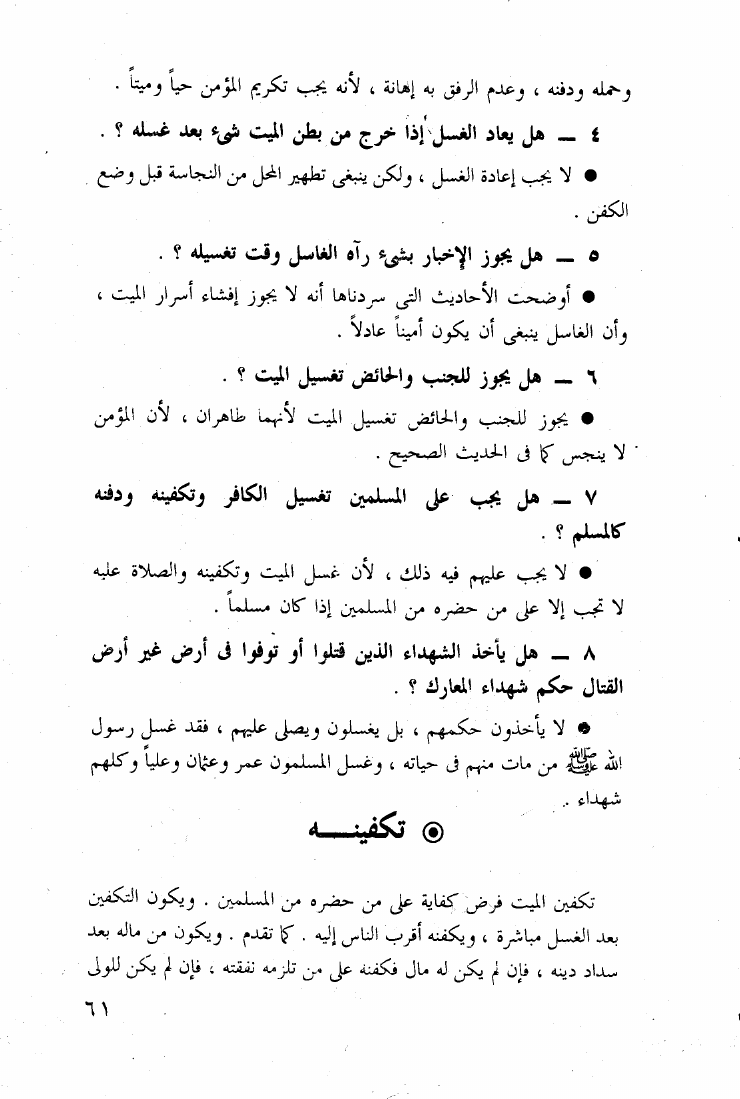 وحمله ودفنه ، وعدم الرفق به إهانة ، لأنه يجب تكريم المؤمن حياً وميتاً .
٤ — هل يعاد الغسل إذا خرج من بطن الميت شىء بعد غسله ؟ .
● لا يجب إعادة الغسل ، ولكن ينبغى تطهير المحل من النجاسة قبل وضع
الكفن .
٥ — هل يجوز الإخبار بشىء رآه الغاسل وقت تغسيله ؟ .
● أوضحت الأحاديث التى سردناها أنه لا يجوز إفشاء أسرار الميت ،
وأن الغاسل ينبغى أن يكون أميناً عادلاً .
٦ — هل يجوز للجنب والحائض تغسيل الميت ؟ .
● يجوز للجنب والحائض تغسيل الميت لأنهما طاهران ، لأن المؤمن
لا ينجس كما فى الحديث الصحيح .
٧ — هل يجب على المسلمين تغسيل الكافر وتكفينه ودفنه
كالمسلم ؟ .
● لا يجب عليهم فيه ذلك ، لأن غسل الميت وتكفينه والصلاة عليه
لا تجب إلا على من حضره من المسلمين إذا كان مسلماً .
٨ — هل يأخذ الشهداء الذين قتلوا أو توفوا فى أرض غير أرض
القتال حكم شهداء المعارك ؟ .
● لا يأخذون حكمهم ، بل يغسلون ويصلى عليهم ، فقد غسل رسول
الله ﷺ من مات منهم فى حياته ، وغسل المسلمون عمر وعثمان وعلياً وكلهم
شهداء .
◉ تكفينـــه
تكفين الميت فرض كفاية على من حضره من المسلمين . ويكون التكفين
بعد الغسل مباشرة ، ويكفنه أقرب الناس إليه . كما تقدم . ويكون من ماله بعد
سداد دينه ، فإن لم يكن له مال فكفنه على من تلزمه نفقته ، فإن لم يكن للولى
٦١